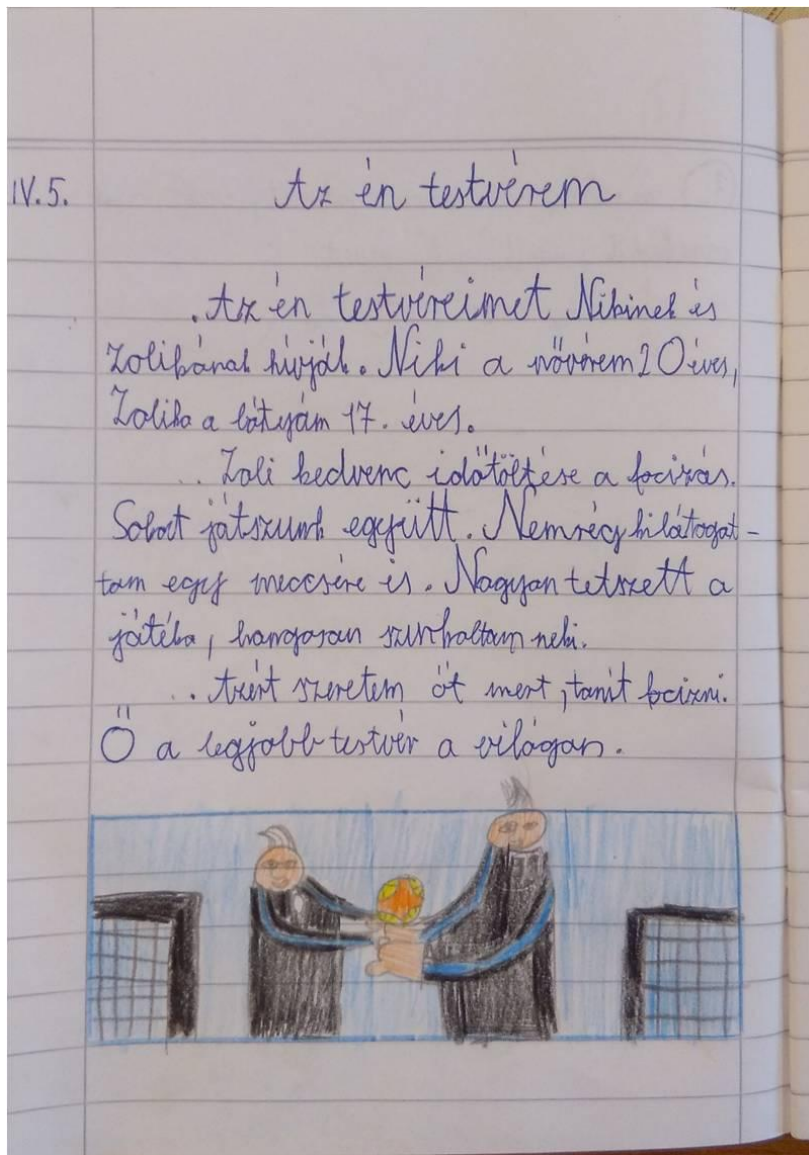 IV.5. Az én testvérem
. Az én testvéreimet Nikinek és
Zolikának hívják. Niki a nővérem 20 éves,
Zolika a bátyám 17. éves.
.. Zoli kedvenc időtöltése a focizás.
Sokat játszunk együtt. Nemrég kilátogat-
tam egy meccsére is. Nagyon tetszett a
játéka, hangosan szurkoltam neki.
.. Azért szeretem őt mert, tanít focizni.
Ő a legjobb testvér a világon.